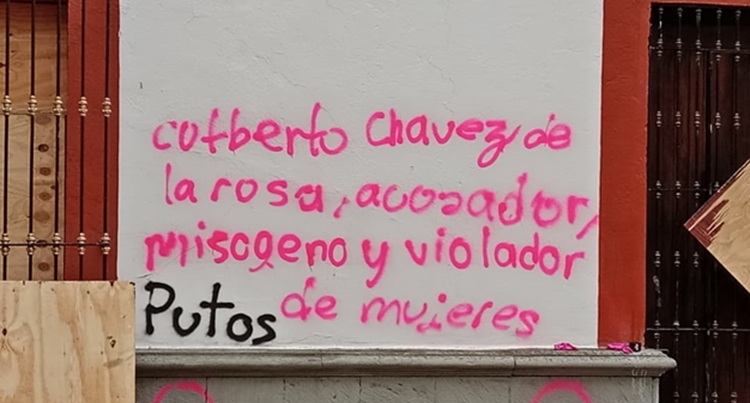 cutberto Chavez de
la rosa, acosador,
misogeno y violador
Putos de mujeres